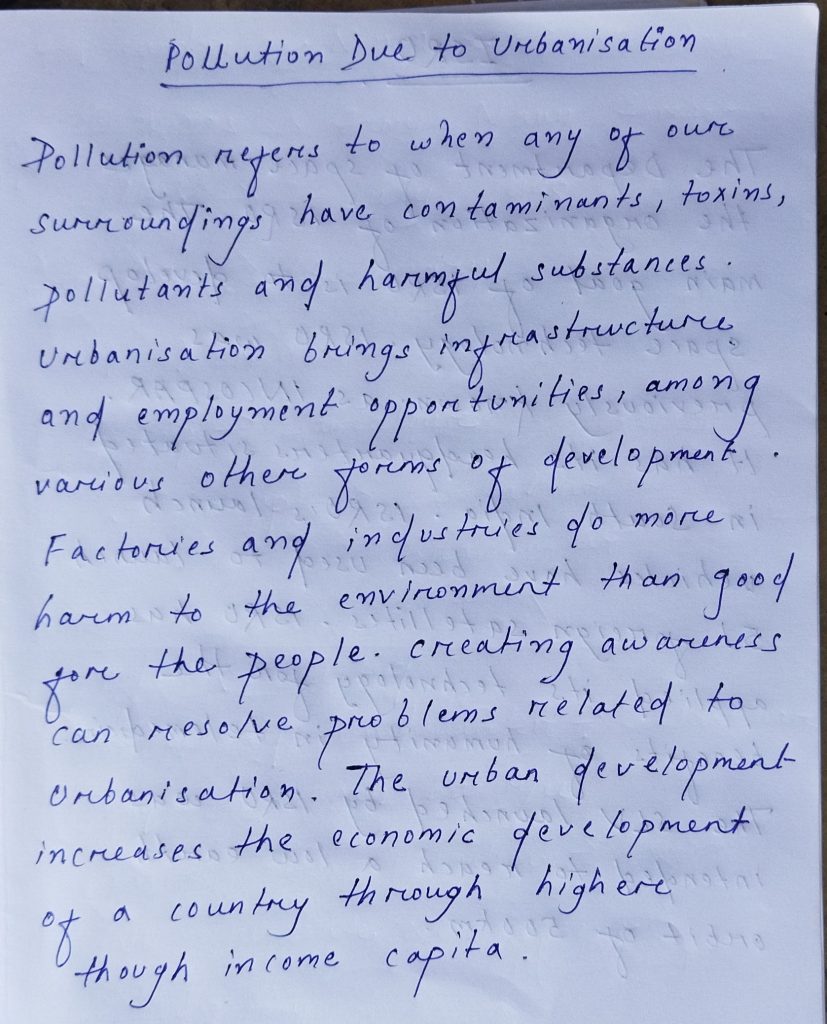 Pollution Due to Urbanisation
Pollution refers to when any of our
surroundings have contaminants, toxins,
pollutants and harmful substances.
Urbanisation brings infrastructure
and employment opportunities, among
various other forms of development.
Factories and industries do more
harm to the environment than good
for the people. Creating awareness
can resolve problems related to
Urbanisation. The urban development
increases the economic development
of a country through higher
though income capita.